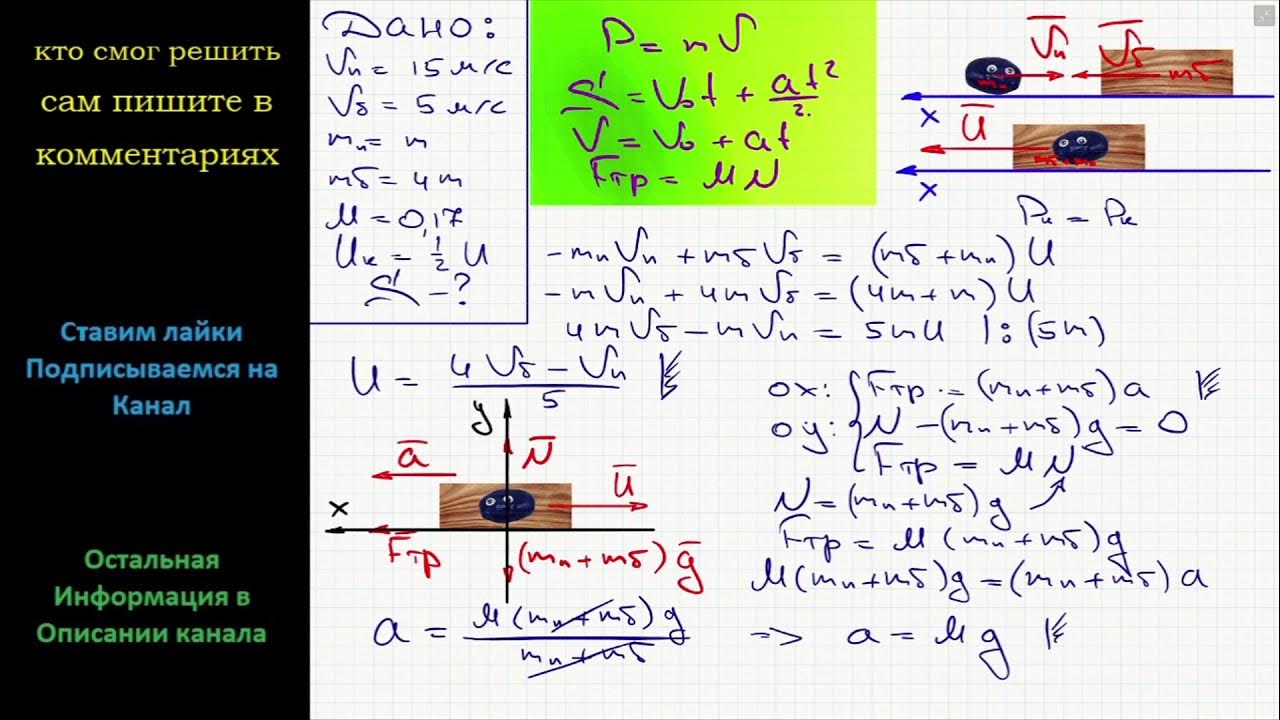 кто смог решить
сам пишите в
комментариях
Ставим лайки
Подписываемся на
Канал
Остальная
Информация в
Описании канала
Дано:
Vп = 15 м/с
Vб = 5 м/с
mп = m
mб = 4m
μ = 0,17
Uк = 1/2 U
S – ?
P = mV
S = V₀t + at²/2
V = V₀ + at
Fтр = μN
Vп Vб mб
x
U
mб + mп
x
Pн = Pк
-mпVп + mбVб = (mб + mп) U
-mVп + 4mVб = (4m + m) U
4mVб - mVп = 5mU |:(5m)
U = (4Vб - Vп)/5
y
N
a
U
x
Fтр
(mп + mб) g
ox: Fтр = (mп + mб) a
oy: N - (mп + mб) g = 0
Fтр = μN
N = (mп + mб) g
Fтр = μ (mп + mб) g
μ(mп + mб) g = (mп + mб) a
a = μ(mп + mб) g/(mп + mб) => a = μg